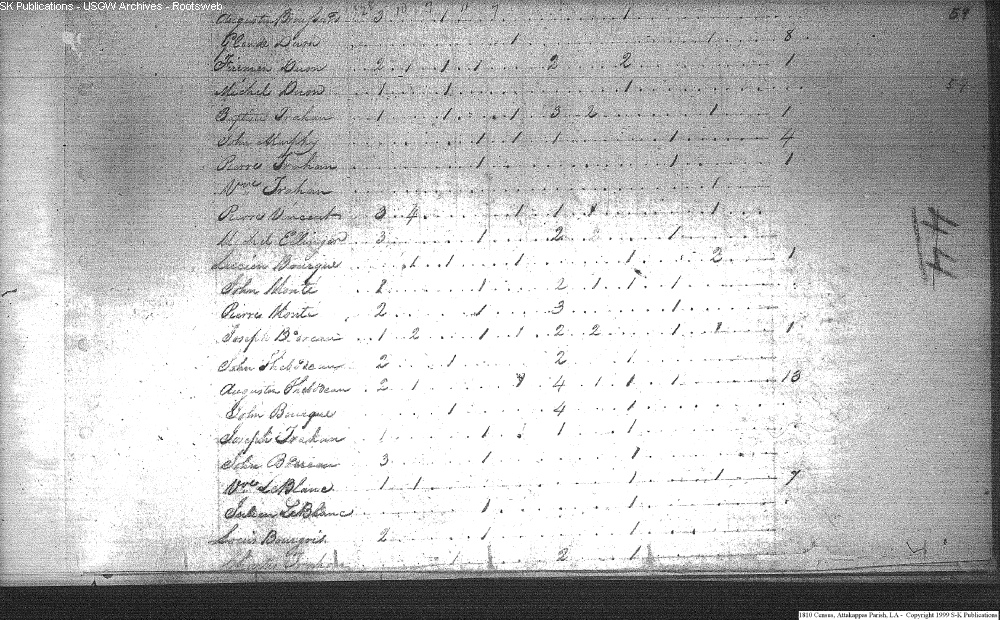 SK Publications - USGW Archives - Rootsweb
Augustin 3 1 1 59
Glaude Duon 1 1 8
Firemen Duon 2 1 1 1 2 2 1
Michel Duon 1 1 1 59
Baptiste Trahan 1 1 1 3 2 1 1
John Murphy 1 1 1 1 4
Pierre Trahan 1 1 1
Vve Trahan 1
Pierre Vincent 3 4 1 1 1 1
Michel Ellinger 3 1 2 1
Lucien Bourque 1 1 1 1 2 1
John Monté 1 2 1 1 1
Pierre Monté 2 1 3 1
Joseph 1 2 1 1 2 2 1 1 1
John Thebdeau 2 1 2 1
Augustin Thebdeau 2 1 4 1 1 1 13
John Bourque 1 4 1
Joseph Trahan 1 1 1 1
John 3 1 1
Vve LeBlanc 1 1 1 1 7
Julien LeBlanc 1 1
Louis Bourgois 2 1 1
1 2 1
44
1810 Census, Attakappas Parish, LA - Copyright 1999 S-K Publications